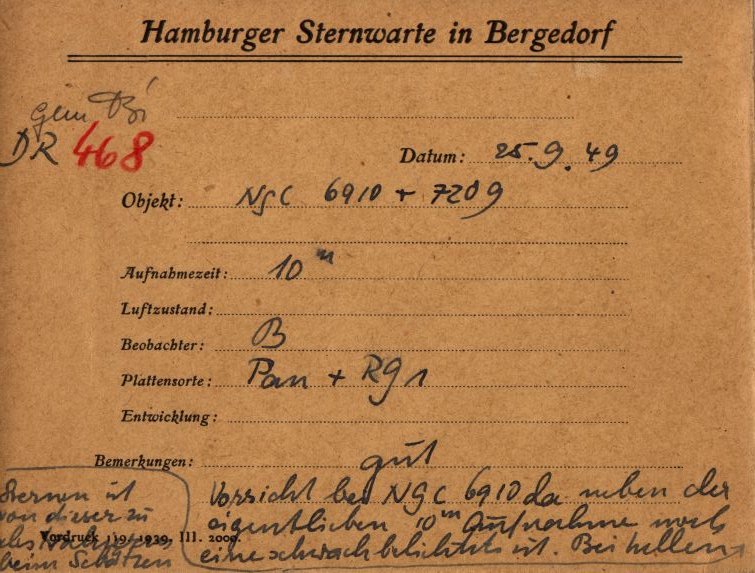 Hamburger Sternwarte in Bergedorf
gem Bi
DR 468
Datum: 25.9.49
Objekt: NGC 6910 + 7209
Aufnahmezeit: 10 m
Luftzustand:
Beobachter: B
Plattensorte: Pan + RG1
Entwicklung:
Bemerkungen: gut
Vorsicht bei NGC 6910 da neben der
eigentlichen 10m Aufnahme noch
eine schwach belichtete ist. Bei hellen
Sternen ist
von dieser zu
beim Schätzen
Vordruck 119. 1939. III. 2000.